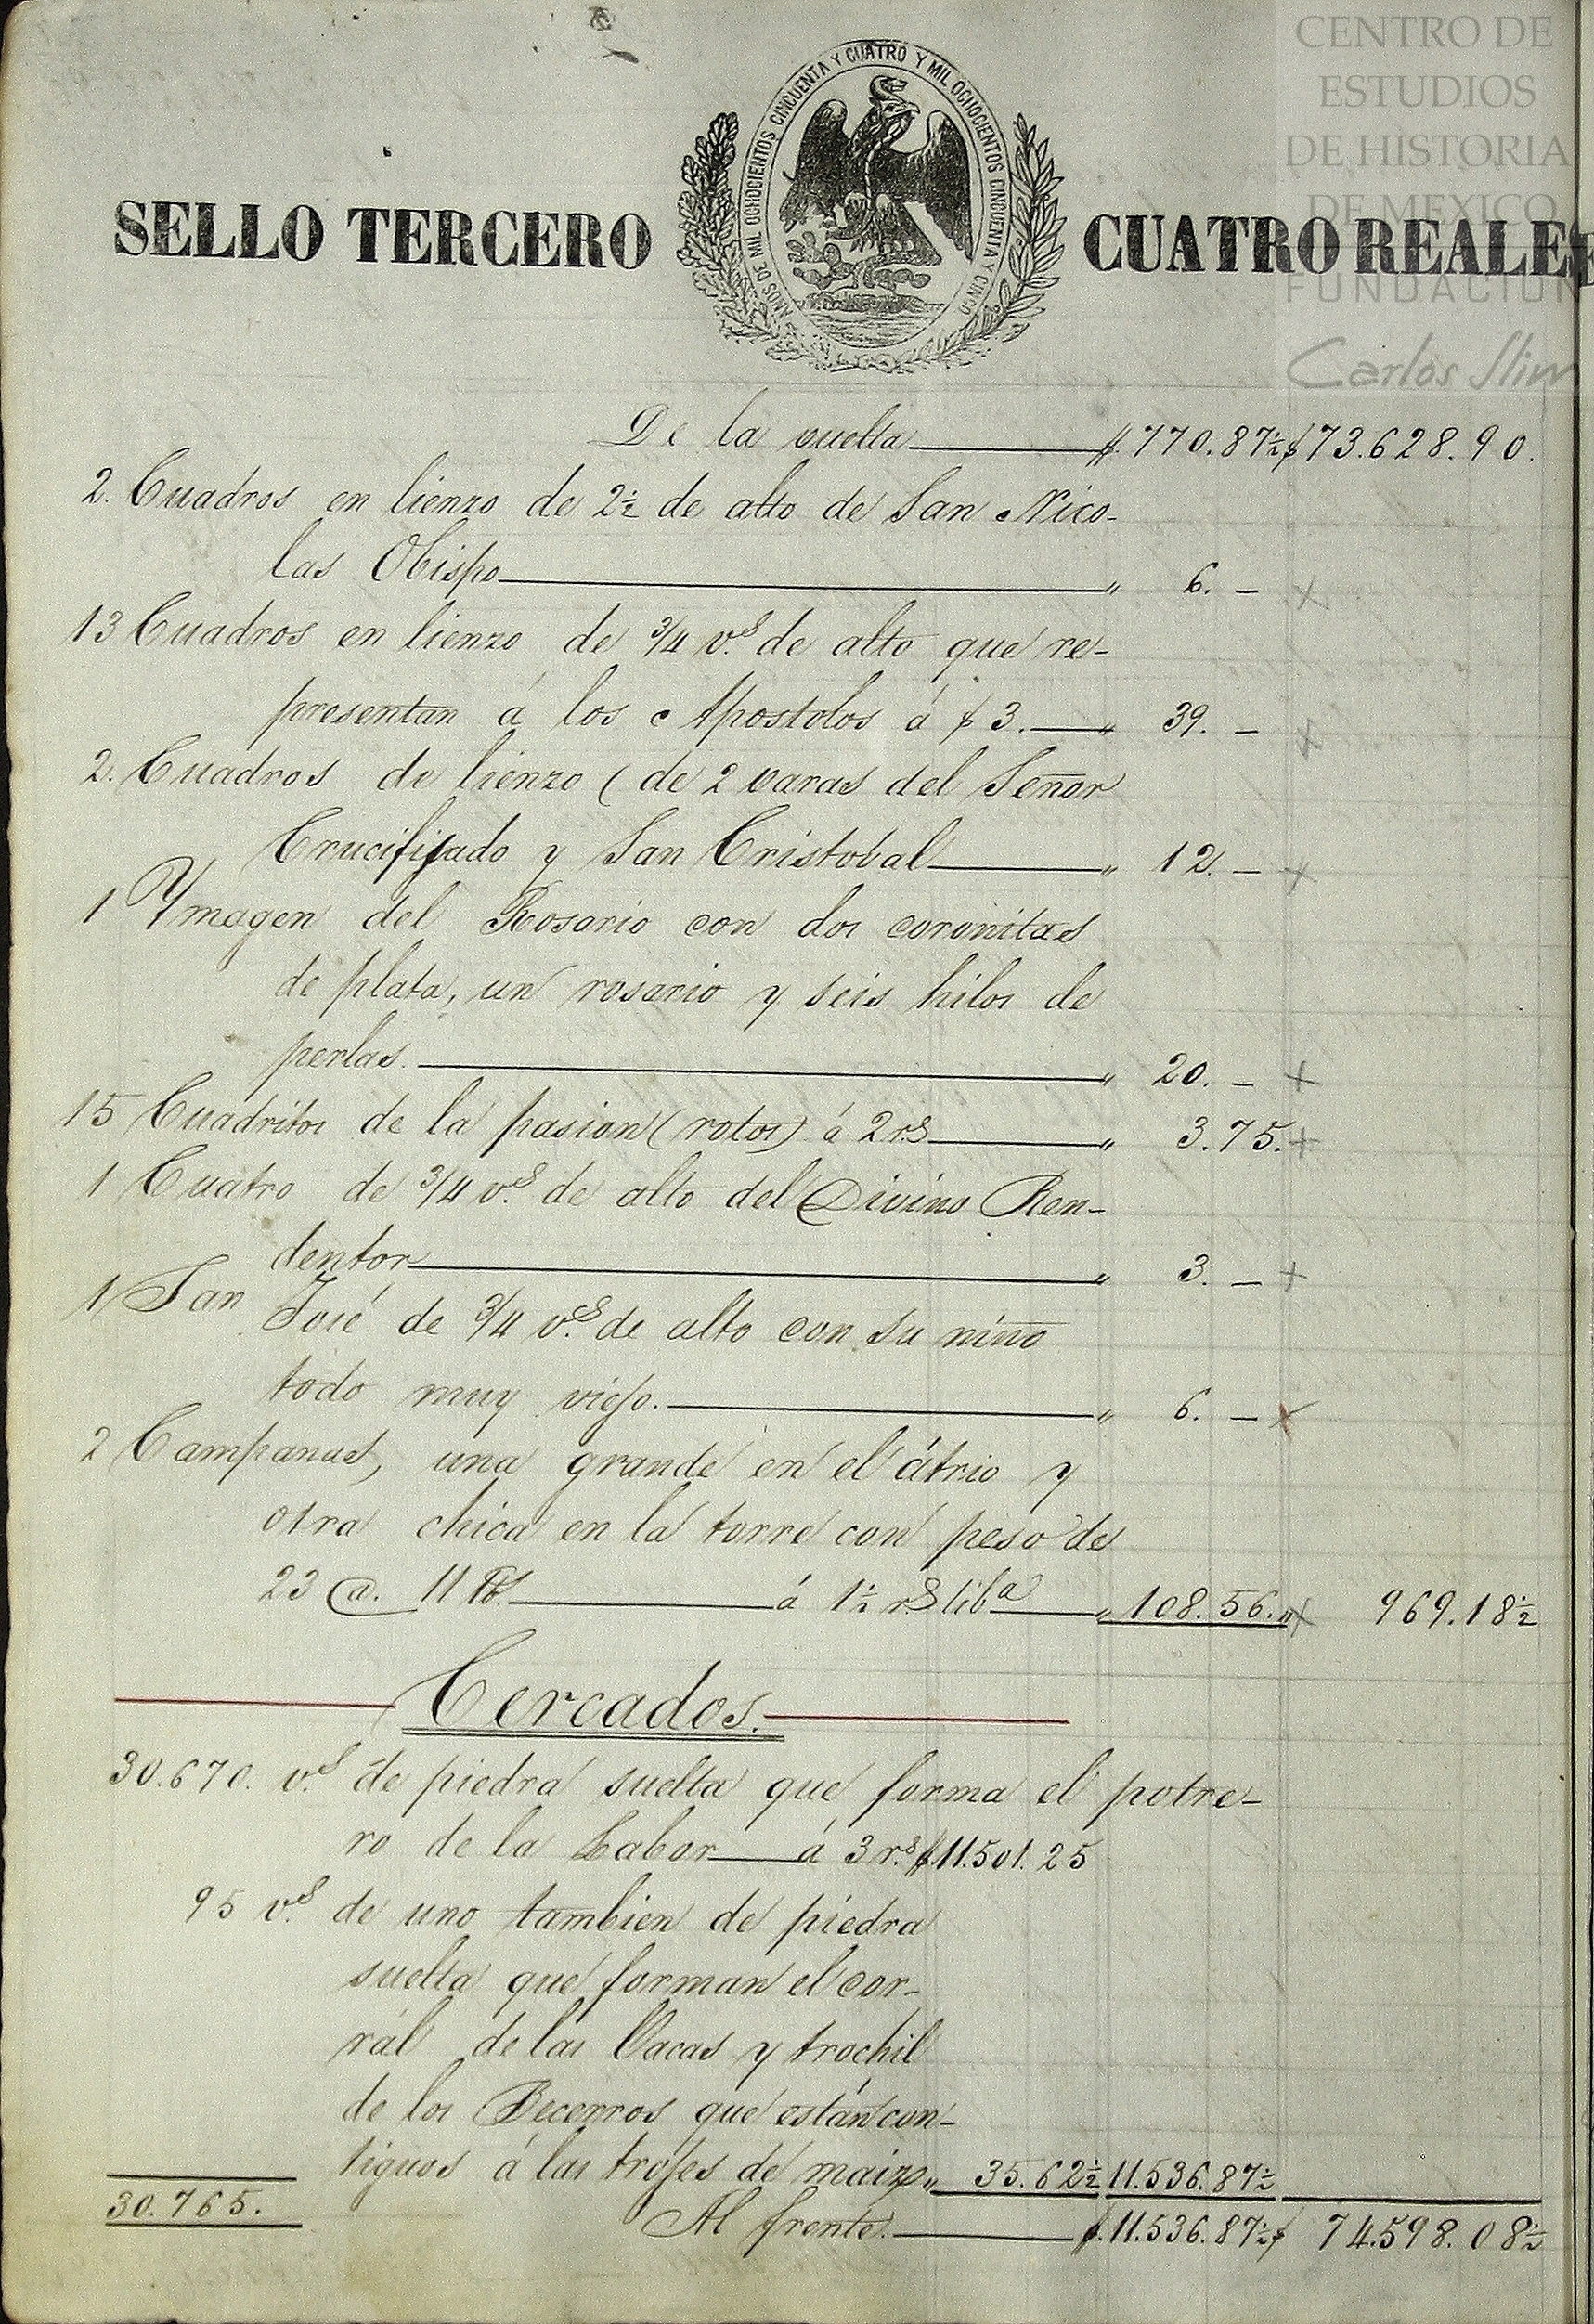 CENTRO DE
ESTUDIOS
DE HISTORIA
DE MEXICO
FUNDACION
Carlos Slim
AÑOS DE MIL OCHOCIENTOS CINCUENTA Y CUATRO Y MIL OCHOCIENTOS CINCUENTA Y CINCO
SELLO TERCERO CUATRO REALE
De la vuelta $.770.87½ $73.628.90.
2. Cuadros en lienzo de 2½ de alto de San Nico-
las Obispo " 6. –
13 Cuadros en lienzo de 3/4 v.s de alto que re-
presentan á los Apostolos á $3. " 39. –
2. Cuadros de lienzo (de 2 varas del Señor
Crucifijado y San Cristobal " 12. –
1 Ymagen del Rosario con dos coronitas
de plata, un rosario y seis hilos de
perlas. " 20. –
15 Cuadritos de la pasion (rotos) á 2 r.s " 3.75.
1 Cuatro de 3/4 v.s de alto del Divino Ren-
dentor " 3. –
1 San José de 3/4 v.s de alto con su niño
todo muy viejo. " 6. –
2 Campanas, una grande en el átrio y
otra chica en la torre con peso de
23 @. 11 lb. á 1½ r.s lib.a " 108.56." 969.18½
Cercados.
30.670. v.s de piedra suelta que forma el potre-
ro de la Labor á 3 r.s $.11.501.25
95 v.s de uno tambien de piedra
suelta que forman el cor-
rál de las Vacas y trochil
de los Becerros que están con-
tiguos á las trojes de maiz " 35.62½ 11.536.87½
30.765.
Al frente. $.11.536.87½ $ 74.598.08½